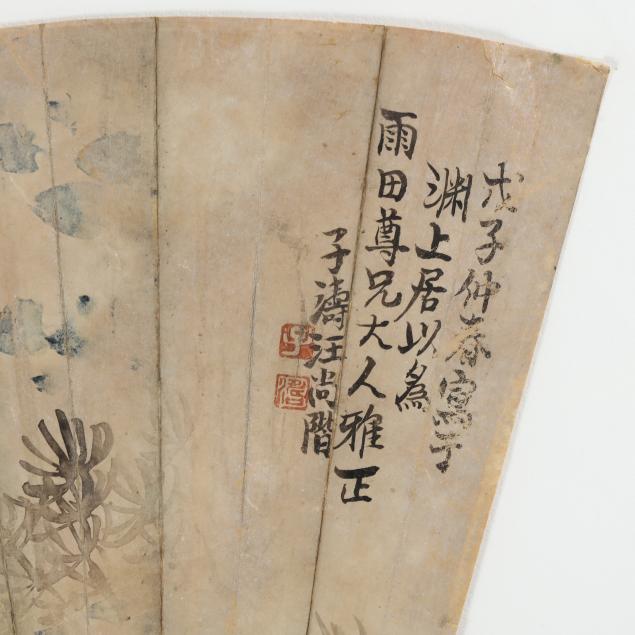 戊子仲春寫于
淵上居以爲
雨田尊兄大人雅正
子濤汪尚階
子
濤